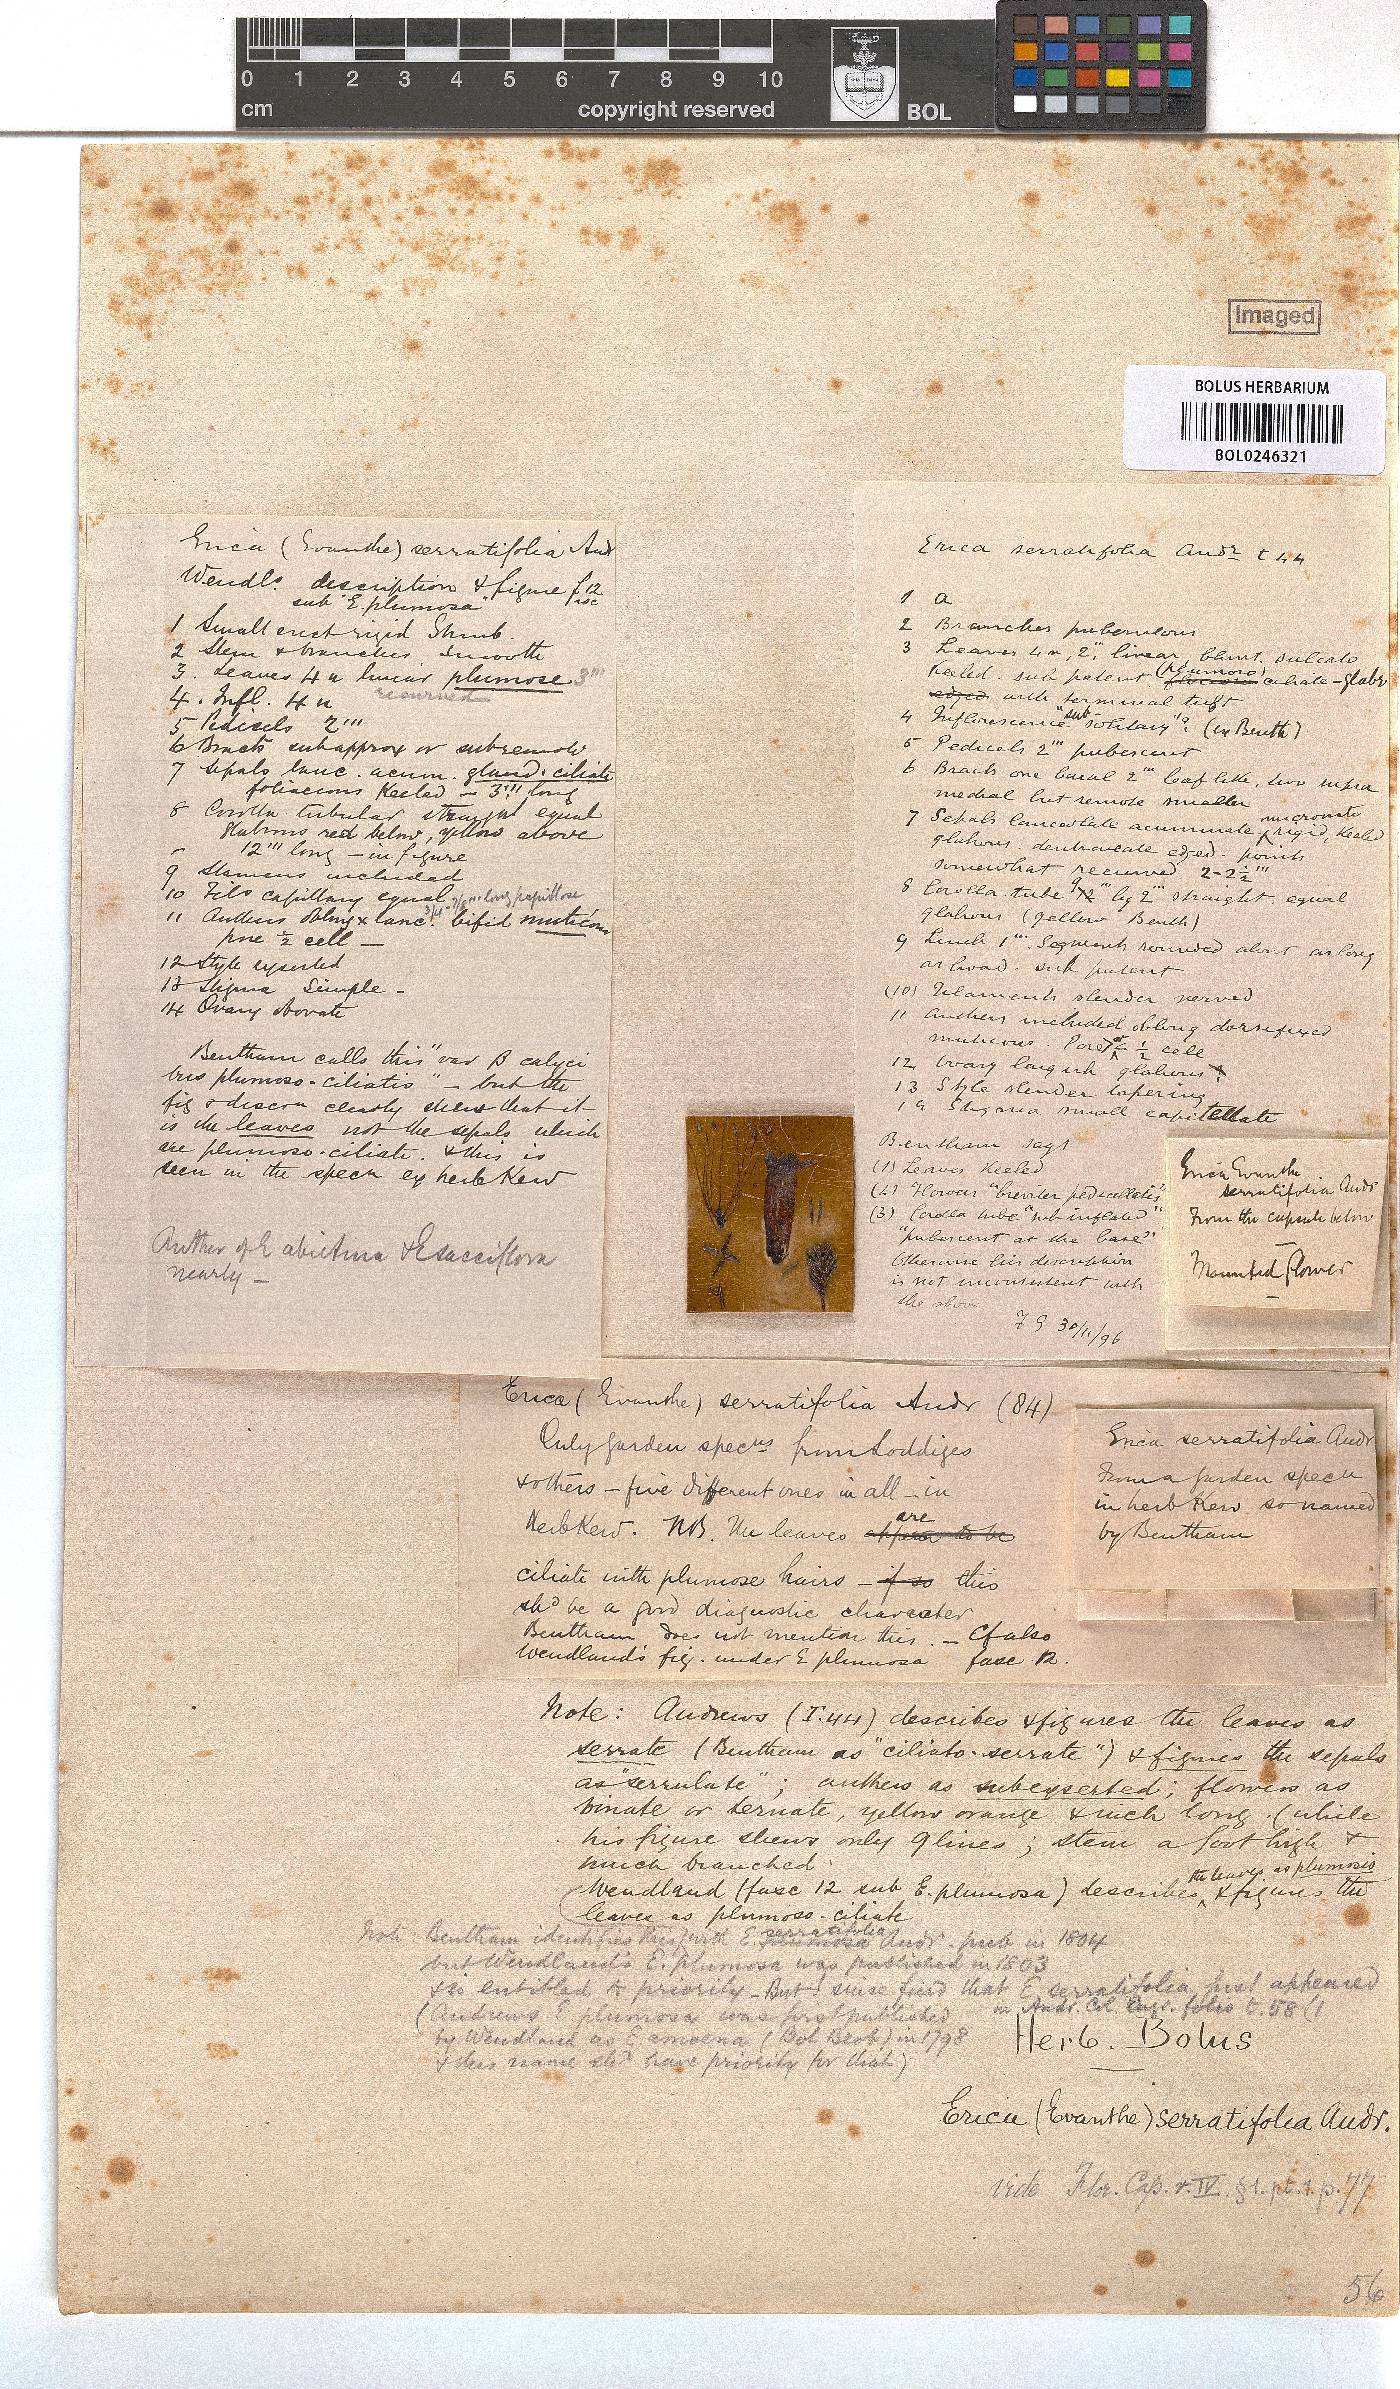 0 1 2 3 4 5 6 7 8 9 10
cm copyright reserved BOL
Imaged
BOLUS HERBARIUM
BOL0246321
Erica (Evanthe) serratifolia Andr
Wendl's description & figure f 12
sub "E. plumosa" fasc
1 Small erect rigid Shrub.
2 Stem & branches smooth
3. Leaves 4n linear plumose 3'''
recurved
4. Infl. 4n
5 Pedicels 2'''
6 Bracts subapprox or subremote
7 Sepals lanc. acum. gland. ciliate
foliaceous keeled - 3''' long
8 Corolla tubular straight equal
glabrous red below, yellow above
12''' long - in figure
9 Stamens included
10 Fils capillary equal
11 Anthers oblong lanc. bifid muticous
3/4 - 7/8''' long papillose
pore ½ cell -
12 Style exserted
13 Stigma Simple -
14 Ovary obovate
Bentham calls this "var B calyci
bus plumoso-ciliatis" - but the
fig & descrn clearly shew that it
is the leaves not the sepals which
are plumoso-ciliate. & this is
seen in the specn ex herb Kew
Anther of E abietina & E sacciflora
nearly -
Erica serratifolia Andr t 44
1 a
2 Branches puberulous
3 Leaves 4n, 2''' linear, blunt. sulcate
keeled. sub patent (plumoso) ciliate - glabr
edged with terminal tuft
4 Inflorescence "sub-solitary"? (ex Benth)
5 Pedicels 2''' pubescent
6 Bracts one basal 2''' leaf like, two supra
medial but remote smaller
7 Sepals lanceolate acuminate mucronate rigid, keeled
glabrous. denticulate edged. points
somewhat recurved 2-2½'''
8 Corolla tube 7½''' by 2''' straight equal
glabrous (yellow Benth)
9 Limb 1'''. Segments rounded about as long
as broad sub patent
(10) Filaments slender nerved
11 Anthers included oblong dorsifixed
muticous. Pore ½ cell
12 Ovary longish glabrous
13 Style slender tapering
14 Stigma small capitellate
Bentham says
(1) Leaves keeled
(2) Flowers "breviter pedicellatis"
(3) Corolla tube "sub inflated"
"pubescent at the base"
Otherwise his description
is not inconsistent with
the above
F G 30/11/96
Erica Evanthe
serratifolia Andr
From the capsule below
Mounted flower
Erica (Evanthe) serratifolia Andr (84)
Only garden specns from Loddiges
& others - five different ones in all - in
Herb Kew. NB. The leaves are appear to be
ciliate with plumose hairs - if so this
shd be a good diagnostic character
Bentham does not mention this. - Cf also
Wendland's fig. under E plumosa fasc 12.
Erica serratifolia Andr
From a garden specn
in herb Kew so named
by Bentham
Note: Andrews (T.44) describes & figures the leaves as
serrate (Bentham as "ciliato-serrate") & figures the sepals
as "serrulate"; anthers as subexserted; flowers as
binate or ternate, yellow orange & inch long. (while
his figure shews only 9 lines; stem a foot high &
much branched.
Wendland (fasc 12 sub E. plumosa) describes the leaves as plumosis & figures the
leaves as plumoso-ciliate
Note: Bentham identifies this with E. plumosa serratifolia Andr. pub in 1804
but Wendland's E. plumosa was published in 1803
& is entitled to priority - But I since find that E. serratifolia first appeared
in Andr. Col. Engs. folio t. 58 (1
(Andrews E plumosa was first published
by Wendland as E amoena (Bot Beob) in 1798
& this name shd have priority for that)
Herb. Bolus
Erica (Evanthe) serratifolia Andr.
vide Flor. Cap. v. IV. §1. pt. 1. p. 77
56